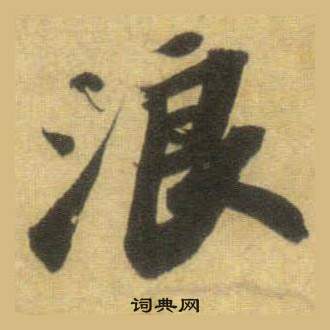 浪
词典网